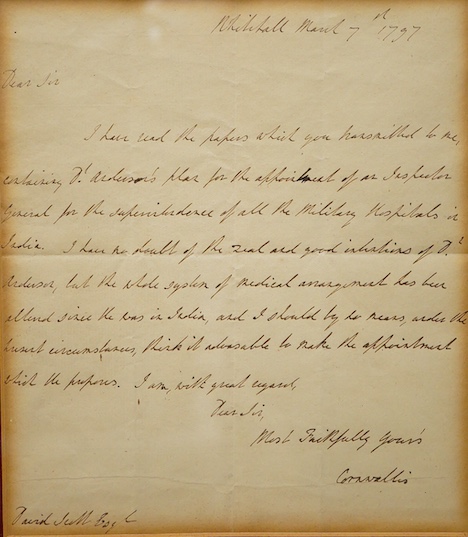 Whitehall March 7th 1797
Dear Sir
I have read the papers which you transmitted to me,
containing Dr Anderson's plan for the appointment of an Inspector
General for the superintendence of all the Military Hospitals in
India. I have no doubt of the zeal and good intentions of Dr
Anderson, but the whole system of medical arrangement has been
altered since he was in India, and I should by no means, under the
present circumstances, think it adviseable to make the appointment
which he proposes. I am, with great regard,
Dear Sir,
Most Faithfully Yours
Cornwallis
David Scott Esqr